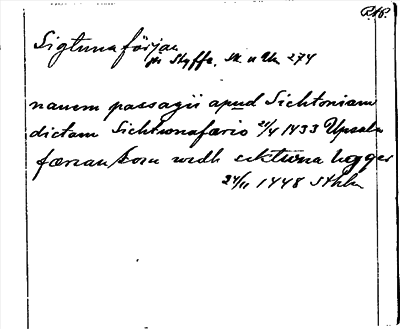 R.A.P.
Sigtunafärjan
pr Styffe, Sk. u Un 274
nauem passagii apud Sichtoniam
dictam Sichtunafærio 21/4 1433 Upsala
færian som wedh siktuna ligger
24/11 1448 Sthlm